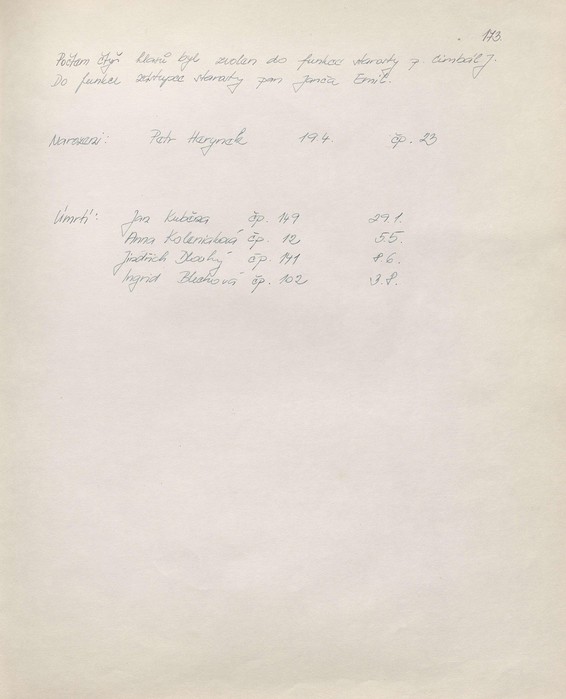 173.
Počtem čtyř hlasů byl zvolen do funkce starosty p. Cimbál J.
Do funkce zástupce starosty pan Janča Emil.
Narození: Petr Harynek 19.4. čp. 23
Úmrtí: Jan Kubesa čp. 149 29.1.
Anna Koleniaková čp. 12 5.5.
Jindřich Dlouhý čp. 141 8.6.
Ingrid čp. 102 3.8.